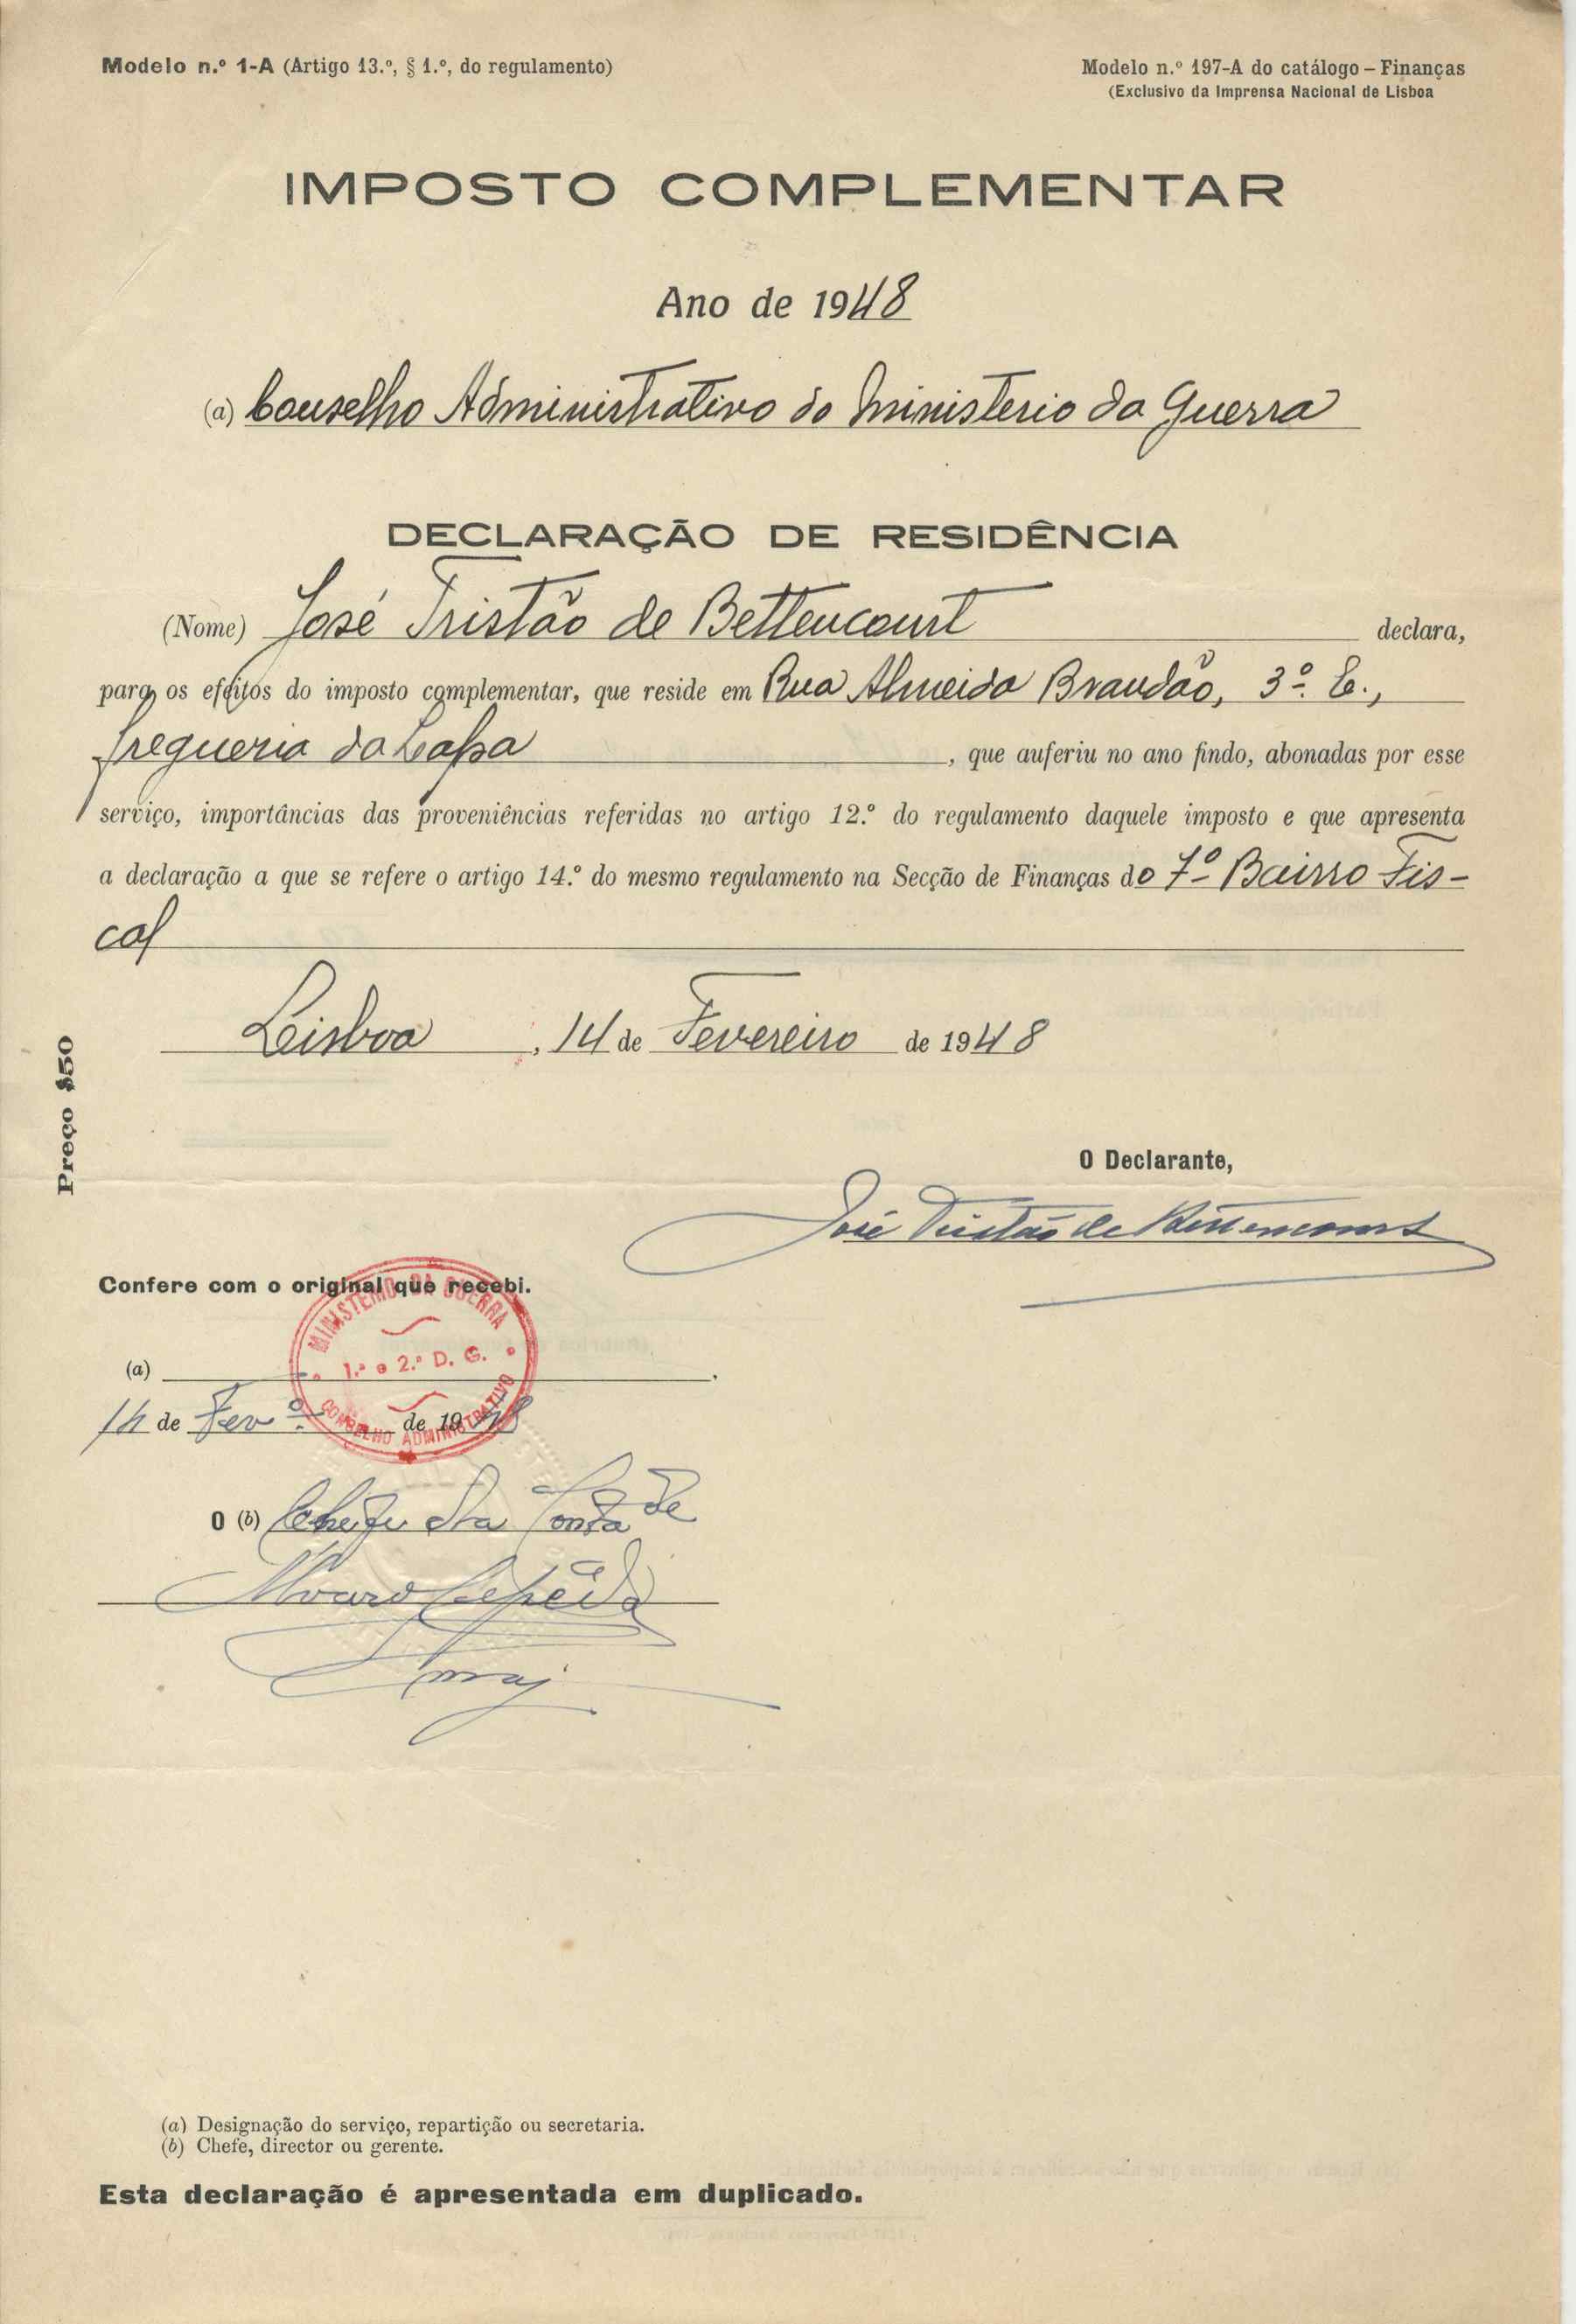 Modelo n.º 1-A (Artigo 13.º, § 1.º, do regulamento)
Modelo n.º 197-A do catálogo – Finanças
(Exclusivo da Imprensa Nacional de Lisboa
IMPOSTO COMPLEMENTAR
Ano de 1948
(a) Conselho Administrativo do Ministerio da Guerra
DECLARAÇÃO DE RESIDÊNCIA
(Nome) José Tristão de Bettencourt declara,
para os efeitos do imposto complementar, que reside em Rua Almeida Brandão, 3º. E.,
fregueria da Lapa, que auferiu no ano findo, abonadas por esse
serviço, importâncias das proveniências referidas no artigo 12.º do regulamento daquele imposto e que apresenta
a declaração a que se refere o artigo 14.º do mesmo regulamento na Secção de Finanças do 7º Bairro Fis-
cal
Lisboa, 14 de Fevereiro de 1948
Preço $50
O Declarante,
José Tristão de Bettencourt
Confere com o original que recebi.
MINISTERIO DA GUERRA
1.ª e 2.ª D. G.
CONSELHO ADMINISTRATIVO
(a)
14 de Fevº. de 1948
O (b) Chefe da Conta de
Alvaro Cepêda
maj
(a) Designação do serviço, repartição ou secretaria.
(b) Chefe, director ou gerente.
Esta declaração é apresentada em duplicado.